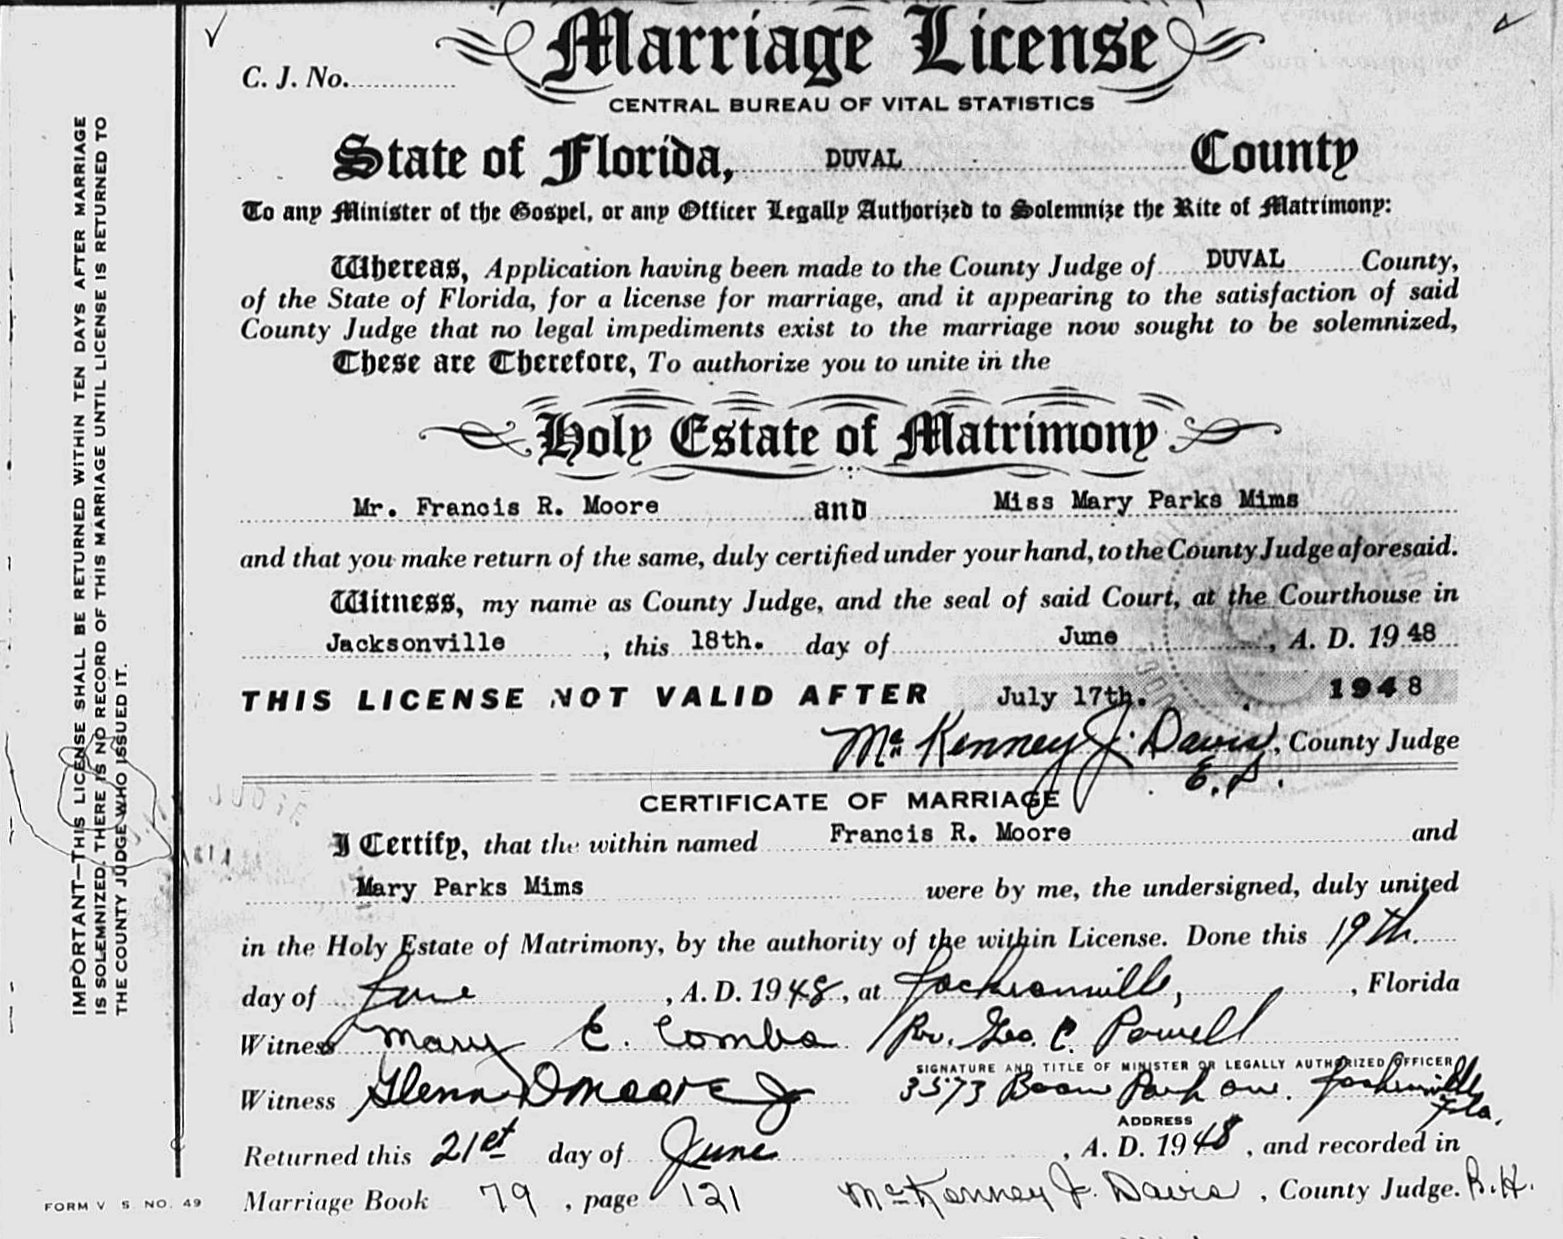 Marriage License
C. J. No.
CENTRAL BUREAU OF VITAL STATISTICS
State of Florida, DUVAL County
To any Minister of the Gospel, or any Officer Legally Authorized to Solemnize the Rite of Matrimony:
Whereas, Application having been made to the County Judge of DUVAL County,
of the State of Florida, for a license for marriage, and it appearing to the satisfaction of said
County Judge that no legal impediments exist to the marriage now sought to be solemnized,
These are Therefore, To authorize you to unite in the
Holy Estate of Matrimony
Mr. Francis R. Moore and Miss Mary Parks Mims
and that you make return of the same, duly certified under your hand, to the County Judge aforesaid.
Witness, my name as County Judge, and the seal of said Court, at the Courthouse in
Jacksonville, this 18th. day of June, A. D. 1948
THIS LICENSE NOT VALID AFTER July 17th. 1948
McKenney J. Davis, County Judge
E. S.
CERTIFICATE OF MARRIAGE
I Certify, that the within named Francis R. Moore and
Mary Parks Mims were by me, the undersigned, duly united
in the Holy Estate of Matrimony, by the authority of the within License. Done this 19th.
day of June, A. D. 1948, at Jacksonville, Florida
Witness Mary E. Combs Rev. Geo. C. Powell
SIGNATURE AND TITLE OF MINISTER OR LEGALLY AUTHORIZED OFFICER
Witness Glenn D Moore Jr 3573 Park ave. Jacksonville
Fla.
ADDRESS
Returned this 21st day of June, A. D. 1948, and recorded in
Marriage Book 79, page 121 McKenney J. Davis, County Judge. B. H.
FORM V S NO. 49
IMPORTANT—THIS LICENSE SHALL BE RETURNED WITHIN TEN DAYS AFTER MARRIAGE
IS SOLEMNIZED. THERE IS NO RECORD OF THIS MARRIAGE UNTIL LICENSE IS RETURNED TO
THE COUNTY JUDGE WHO ISSUED IT.